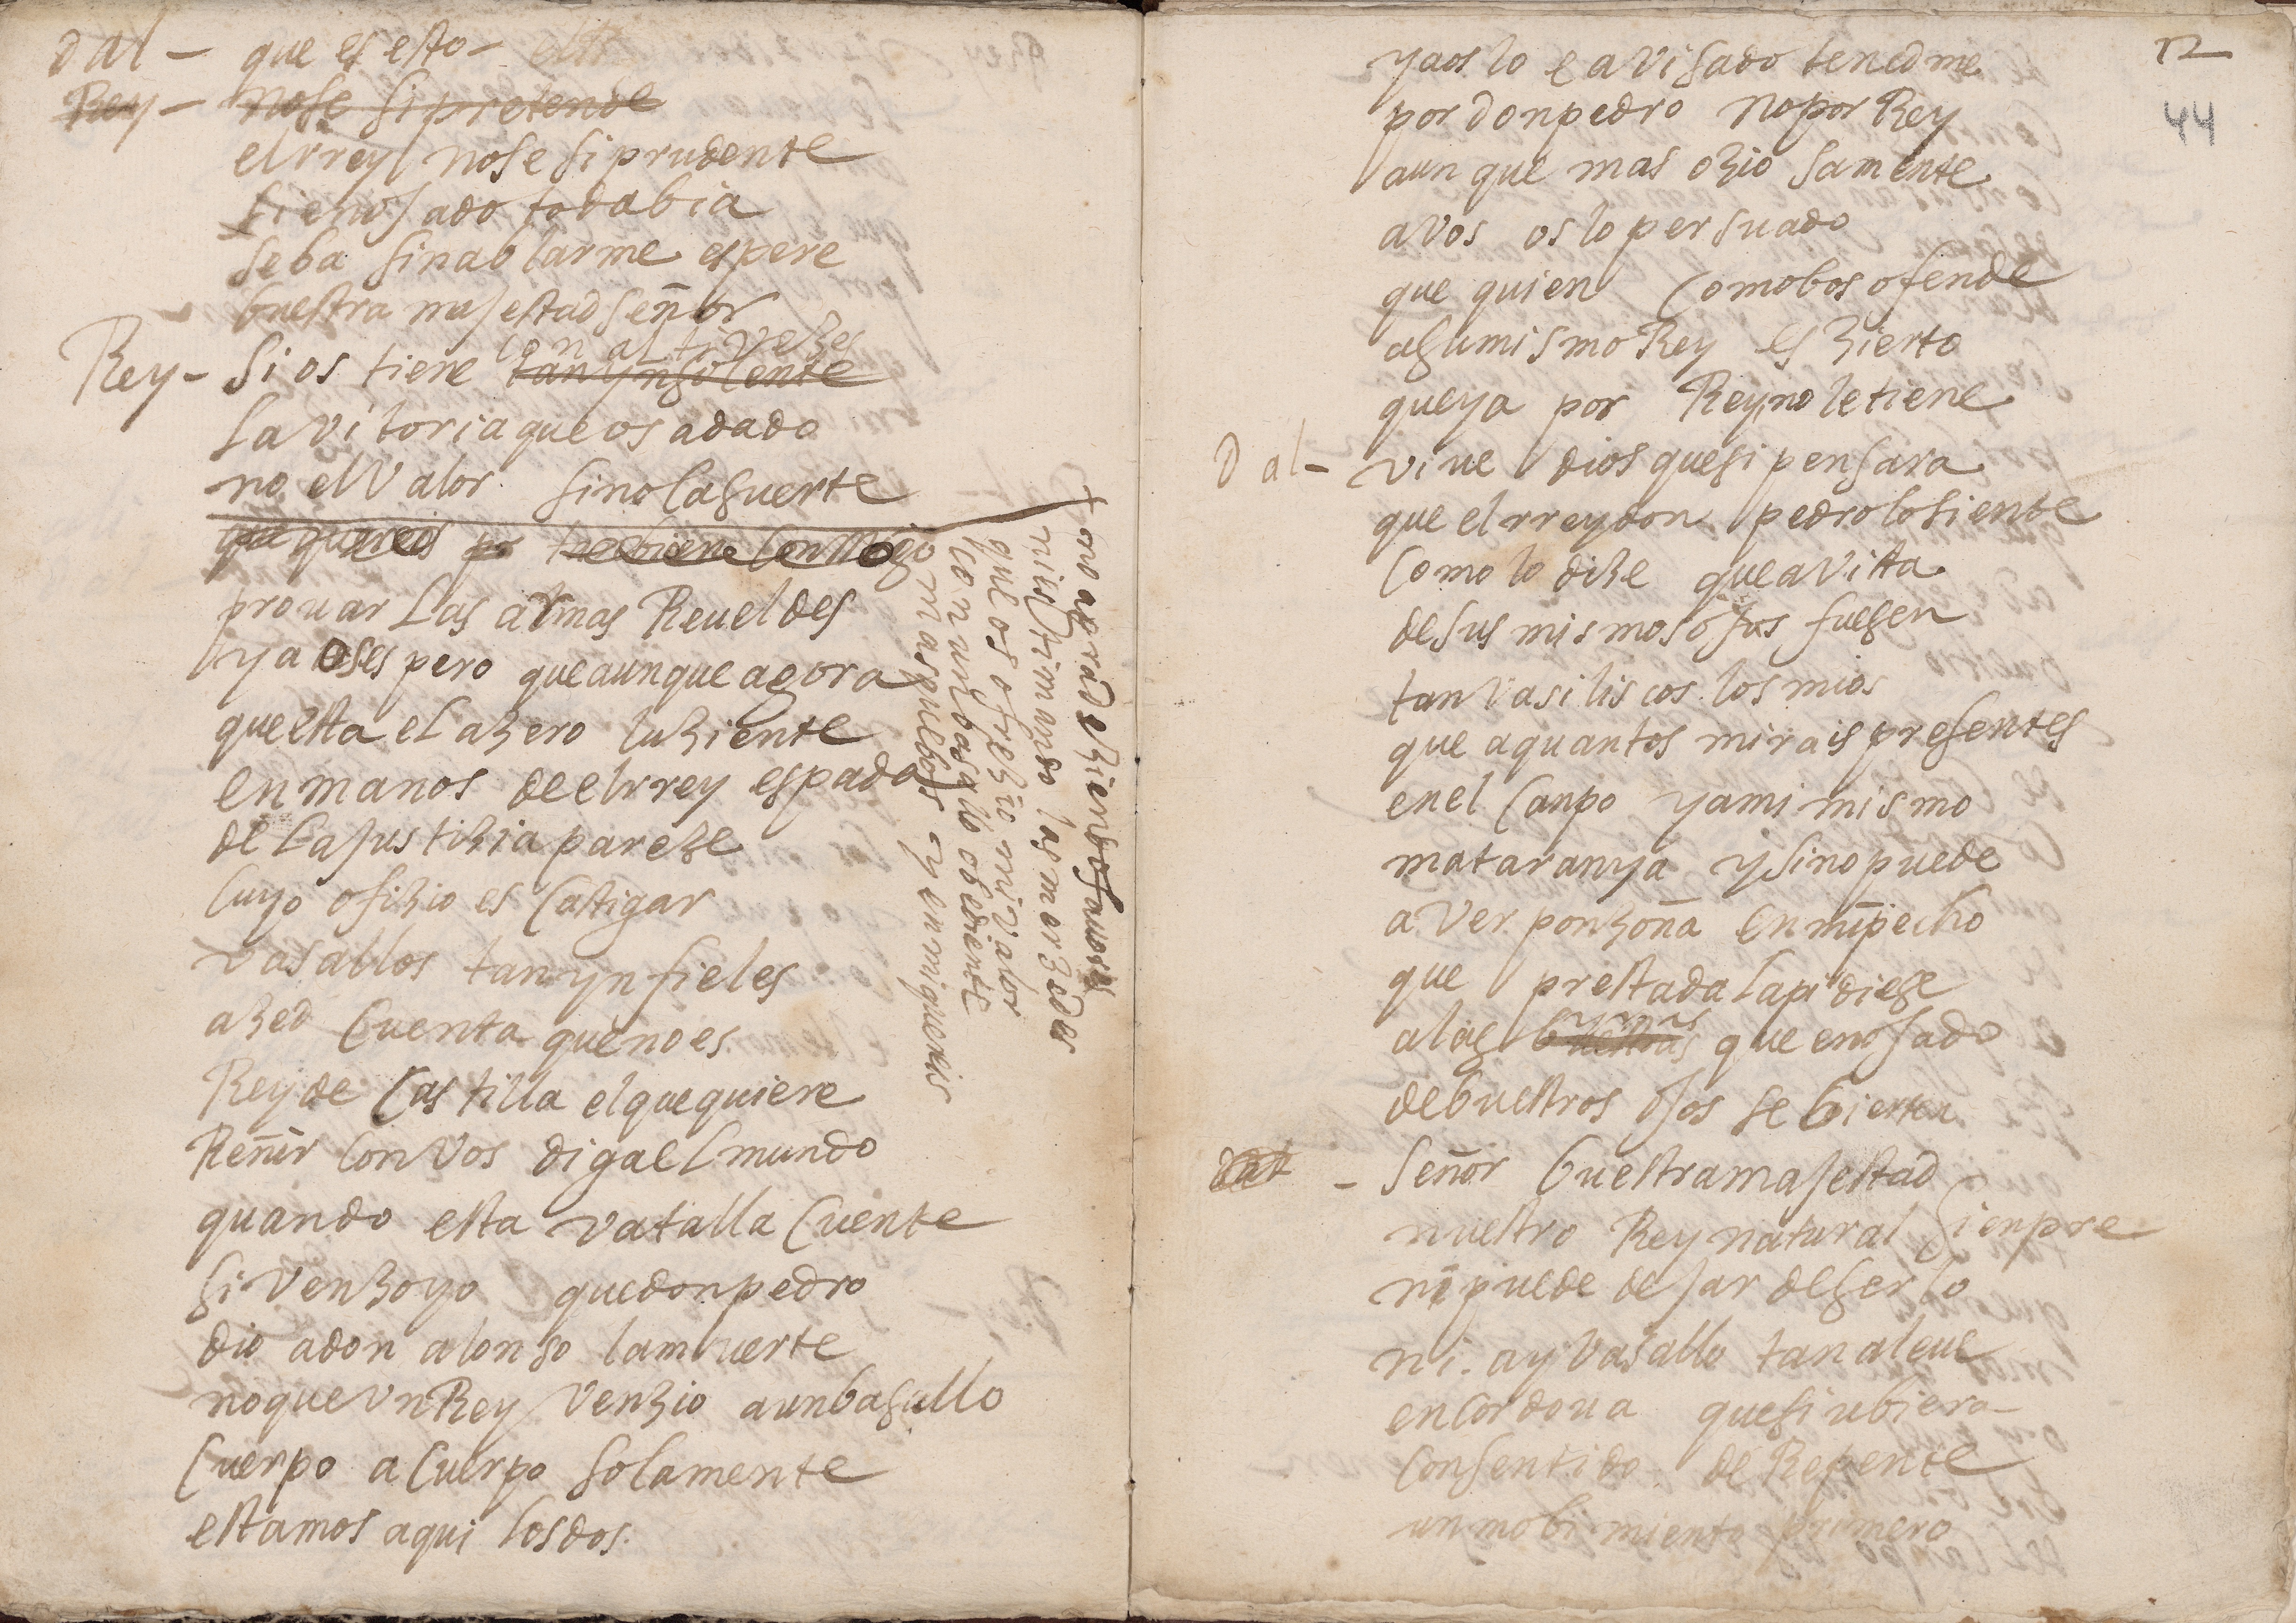 D al - que es esto -
Rey - no se si pretende
el rrey no se si prudente
si enojado todabia
se ba sin ablarme espere
buestra majestad señor
con altivezes
Rey - si os tiene tan ynsolente
la vitoria que os a dado
no el valor sino la suerte
que quereis
prouar las armas Reueldes
ya os espero que aunque agora
que esta el azero luziente
en manos de el rrey espada
de la justizia pareze
cuyo ofizio es castigar
vasallos tan ynfieles
azed cuenta que no es
Rey de castilla el que quiere
Reñir con vos diga el mundo
quando esta vatalla cuente
si venzo yo que don pedro
dio a don alonso la muerte
no que vn Rey venzio a un basallo
cuerpo a cuerpo solamente
estamos aqui los dos.
+ no agradeziendo fauores
ni estimando las merzedes
que os ofrezio mi valor
con un basallo obediente
mas pues bos y enrrique
ya os lo e avisado tenedme
por don pedro no por Rey
aun que mas oziosamente
a vos os lo persuado
que quien como bos ofende
a su mismo Rey es zierto
que ya por Rey no le tiene
D al - viue dios que si pensara
que el rrey don pedro lo siente
como lo dize que a vista
de sus mismos ojos fuesen
tan vasiliscos los mios
que a quantos mirais presentes
en el canpo y a mi mismo
mataran ya y si no puede
aver ponzoña en mi pecho
que prestada la pidiese
a las buestras que enojado
de buestros ojos se bierten
- señor buestra majestad
nuestro Rey natural sienpre
ni puede dejar de serlo
ni ay vasallo tan aleue
en cordoua que si ubiera
consentido de Repente
un mobimiento primero
12
44